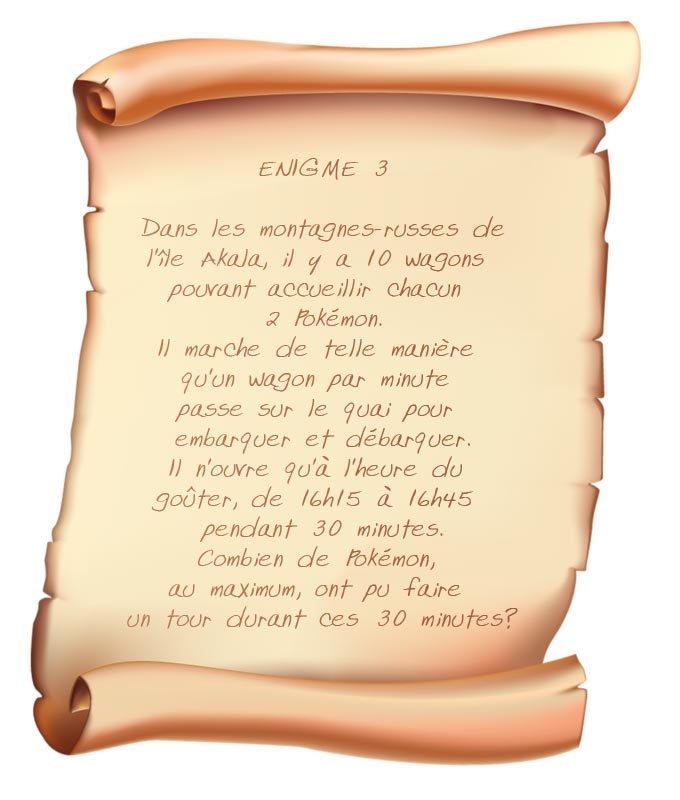 ENIGME 3
Dans les montagnes-russes de
l'île Akala, il y a 10 wagons
pouvant accueillir chacun
2 Pokémon.
Il marche de telle manière
qu'un wagon par minute
passe sur le quai pour
embarquer et débarquer.
Il n'ouvre qu'à l'heure du
goûter, de 16h15 à 16h45
pendant 30 minutes.
Combien de Pokémon,
au maximum, ont pu faire
un tour durant ces 30 minutes?